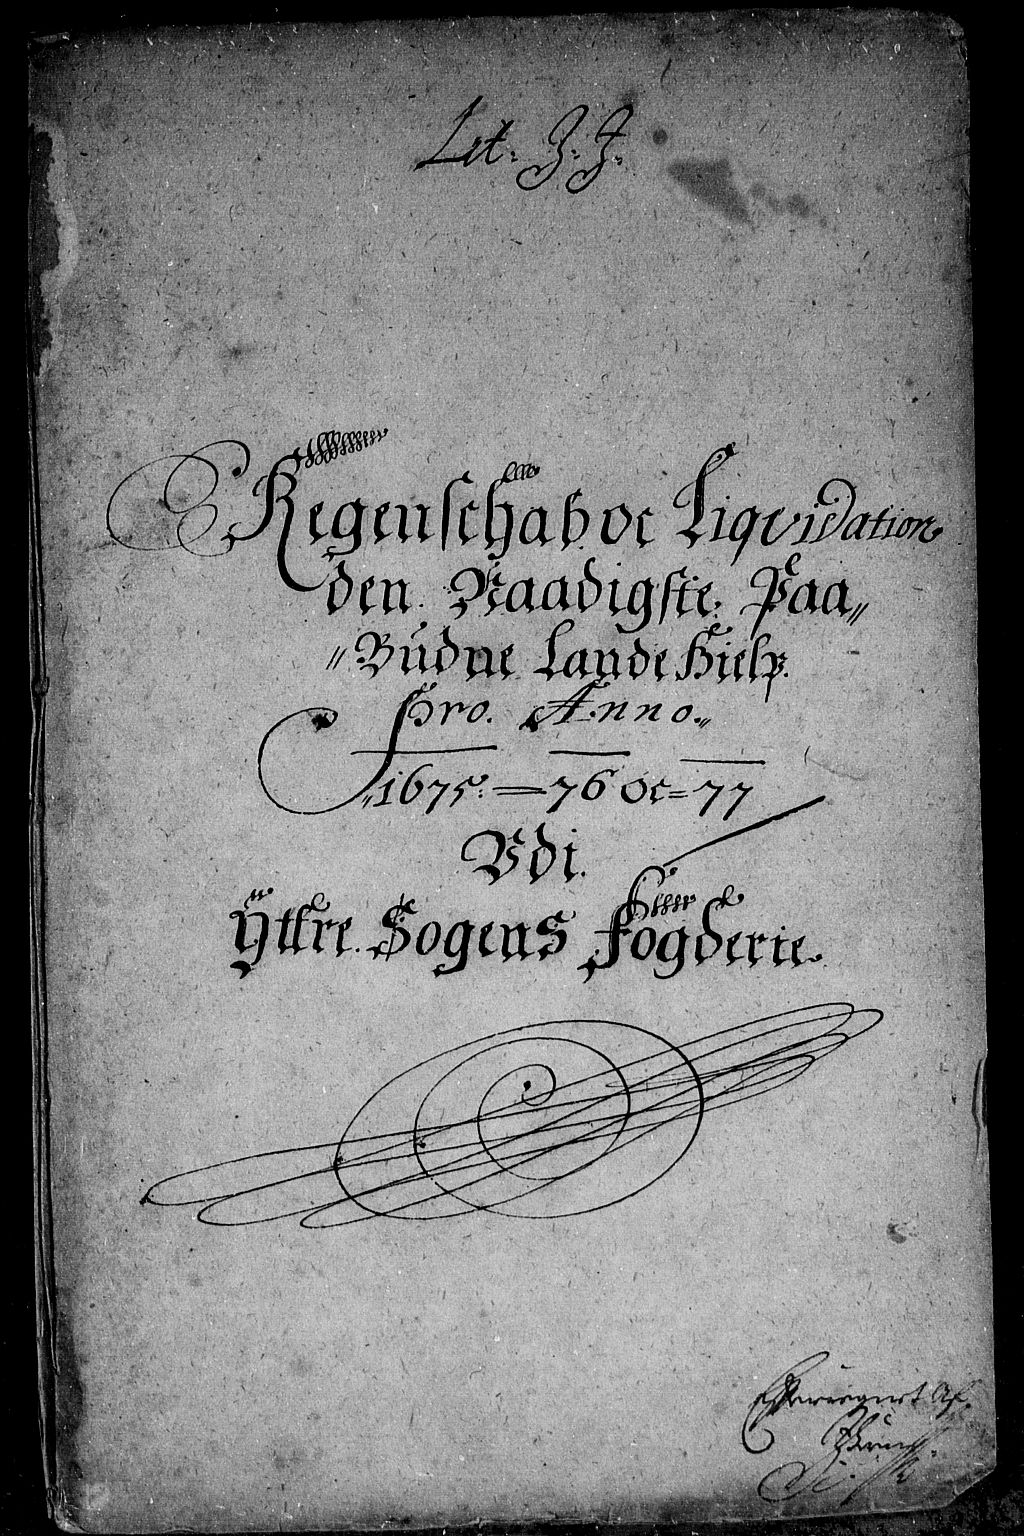 Lit. J. J.
Regenschab oc Liqvidation
den Naadigste Paa„
„Budne Lande Hielp.
Pro. Anno.„
„1675. = 76 oc = 77
Vdi.
Yttre. Sogens Fogderie.
Af